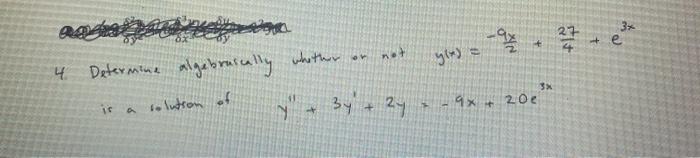 4. Determine algebraically whether or not y(x) = -9x/2 + 27/4 + e^3x
is a solution of y'' + 3y' + 2y = -9x + 20e^3x